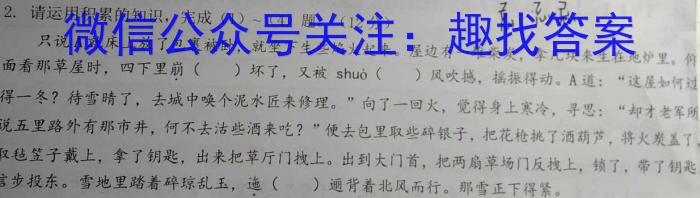 2. 请运用积累的知识，完成
微信公众号关注：趣找答案
面看那草屋时，四下里崩（　　）坏了，又被 shuò（　　）风吹撼，摇振得动。A道：“这屋如何过
得一冬？待雪晴了，去城中唤个泥水匠来修理。”向了一回火，觉得身上寒冷，寻思：“却才老军所
说五里路外有那市井，何不去沽些酒来吃？”便去包里取些碎银子，把花枪挑了酒葫芦，将火炭盖了，
取毡笠子戴上，拿了钥匙，出来把草厅门拽上。出到大门首，把两扇草场门反拽上，锁了，带了钥匙，
信步投东。雪地里踏着碎琼乱玉，迤（　　）逦背着北风而行。那雪正下得紧。